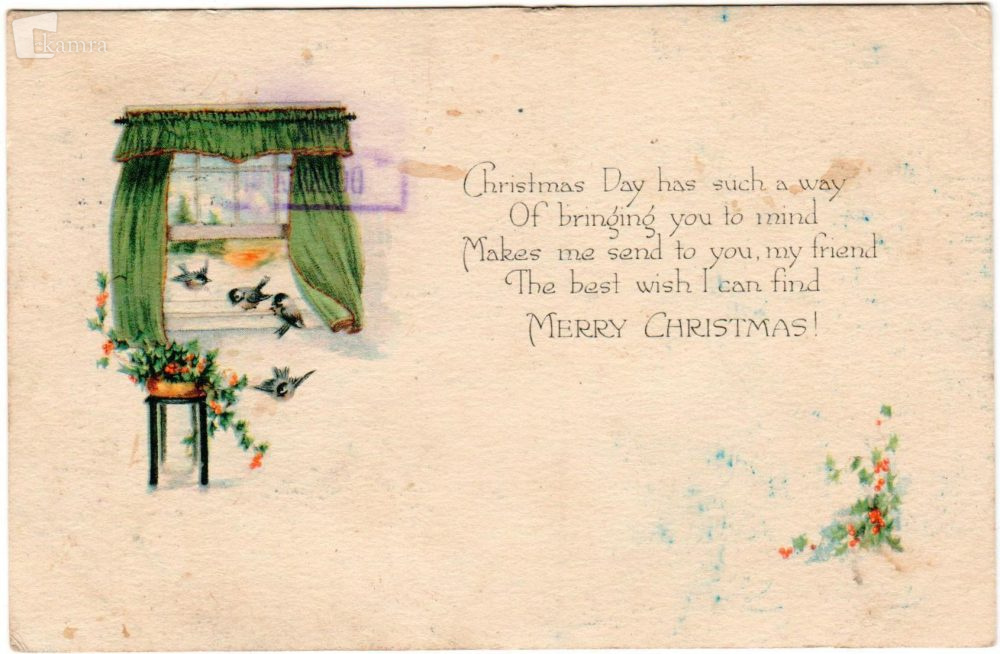 kamra
Christmas Day has such a way
Of bringing you to mind
Makes me send to you, my friend
The best wish I can find
MERRY CHRISTMAS!